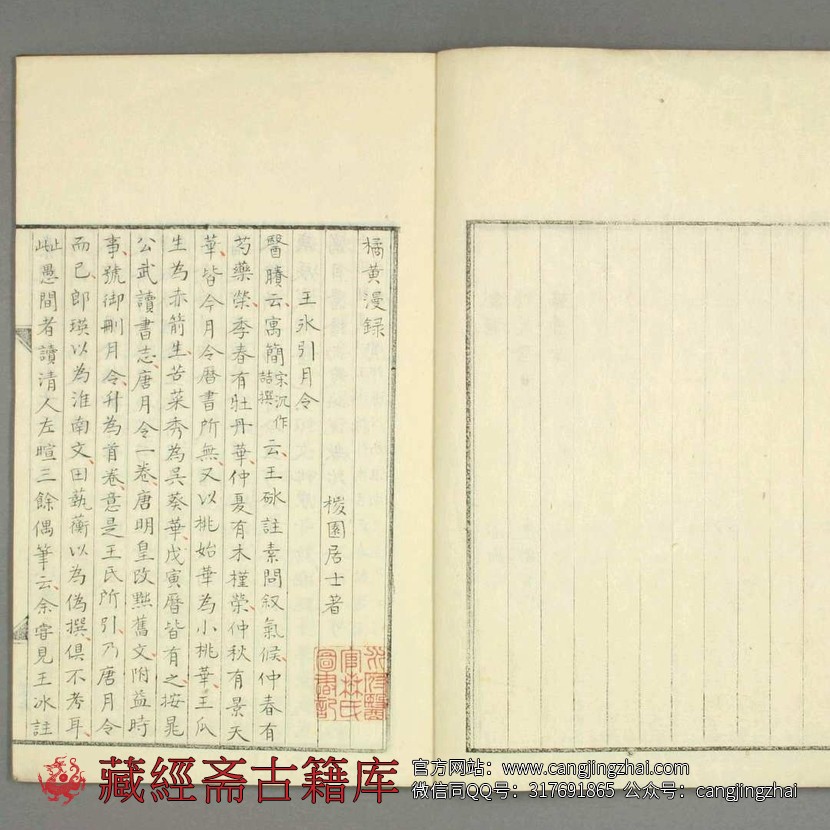 橘黄漫録
椶園居士著
王氷引月令
醫賸云寓簡宋沉作喆撰云王砅註素問叙氣候仲春有
芍藥榮季春有牡丹華仲夏有木槿榮仲秋有景天
華皆今月令暦書所無又以桃始華為小桃華王瓜
生為赤箭生苦菜秀為吳葵華戊寅暦皆有之按晁
公武讀書志唐月令一卷唐明皇改黙舊文附益時
事號御刪月令升為首卷意是王氏所引乃唐月令
而已郎瑛以為淮南文田藝蘅以為偽撰俱不考耳
愚間者讀清人左暄三餘偶筆云余嘗見王冰註
圖書記
藏經斋古籍库
官方网站：www.cangjingzhai.com
微信同QQ号：317691865 公众号：cangjingzhai